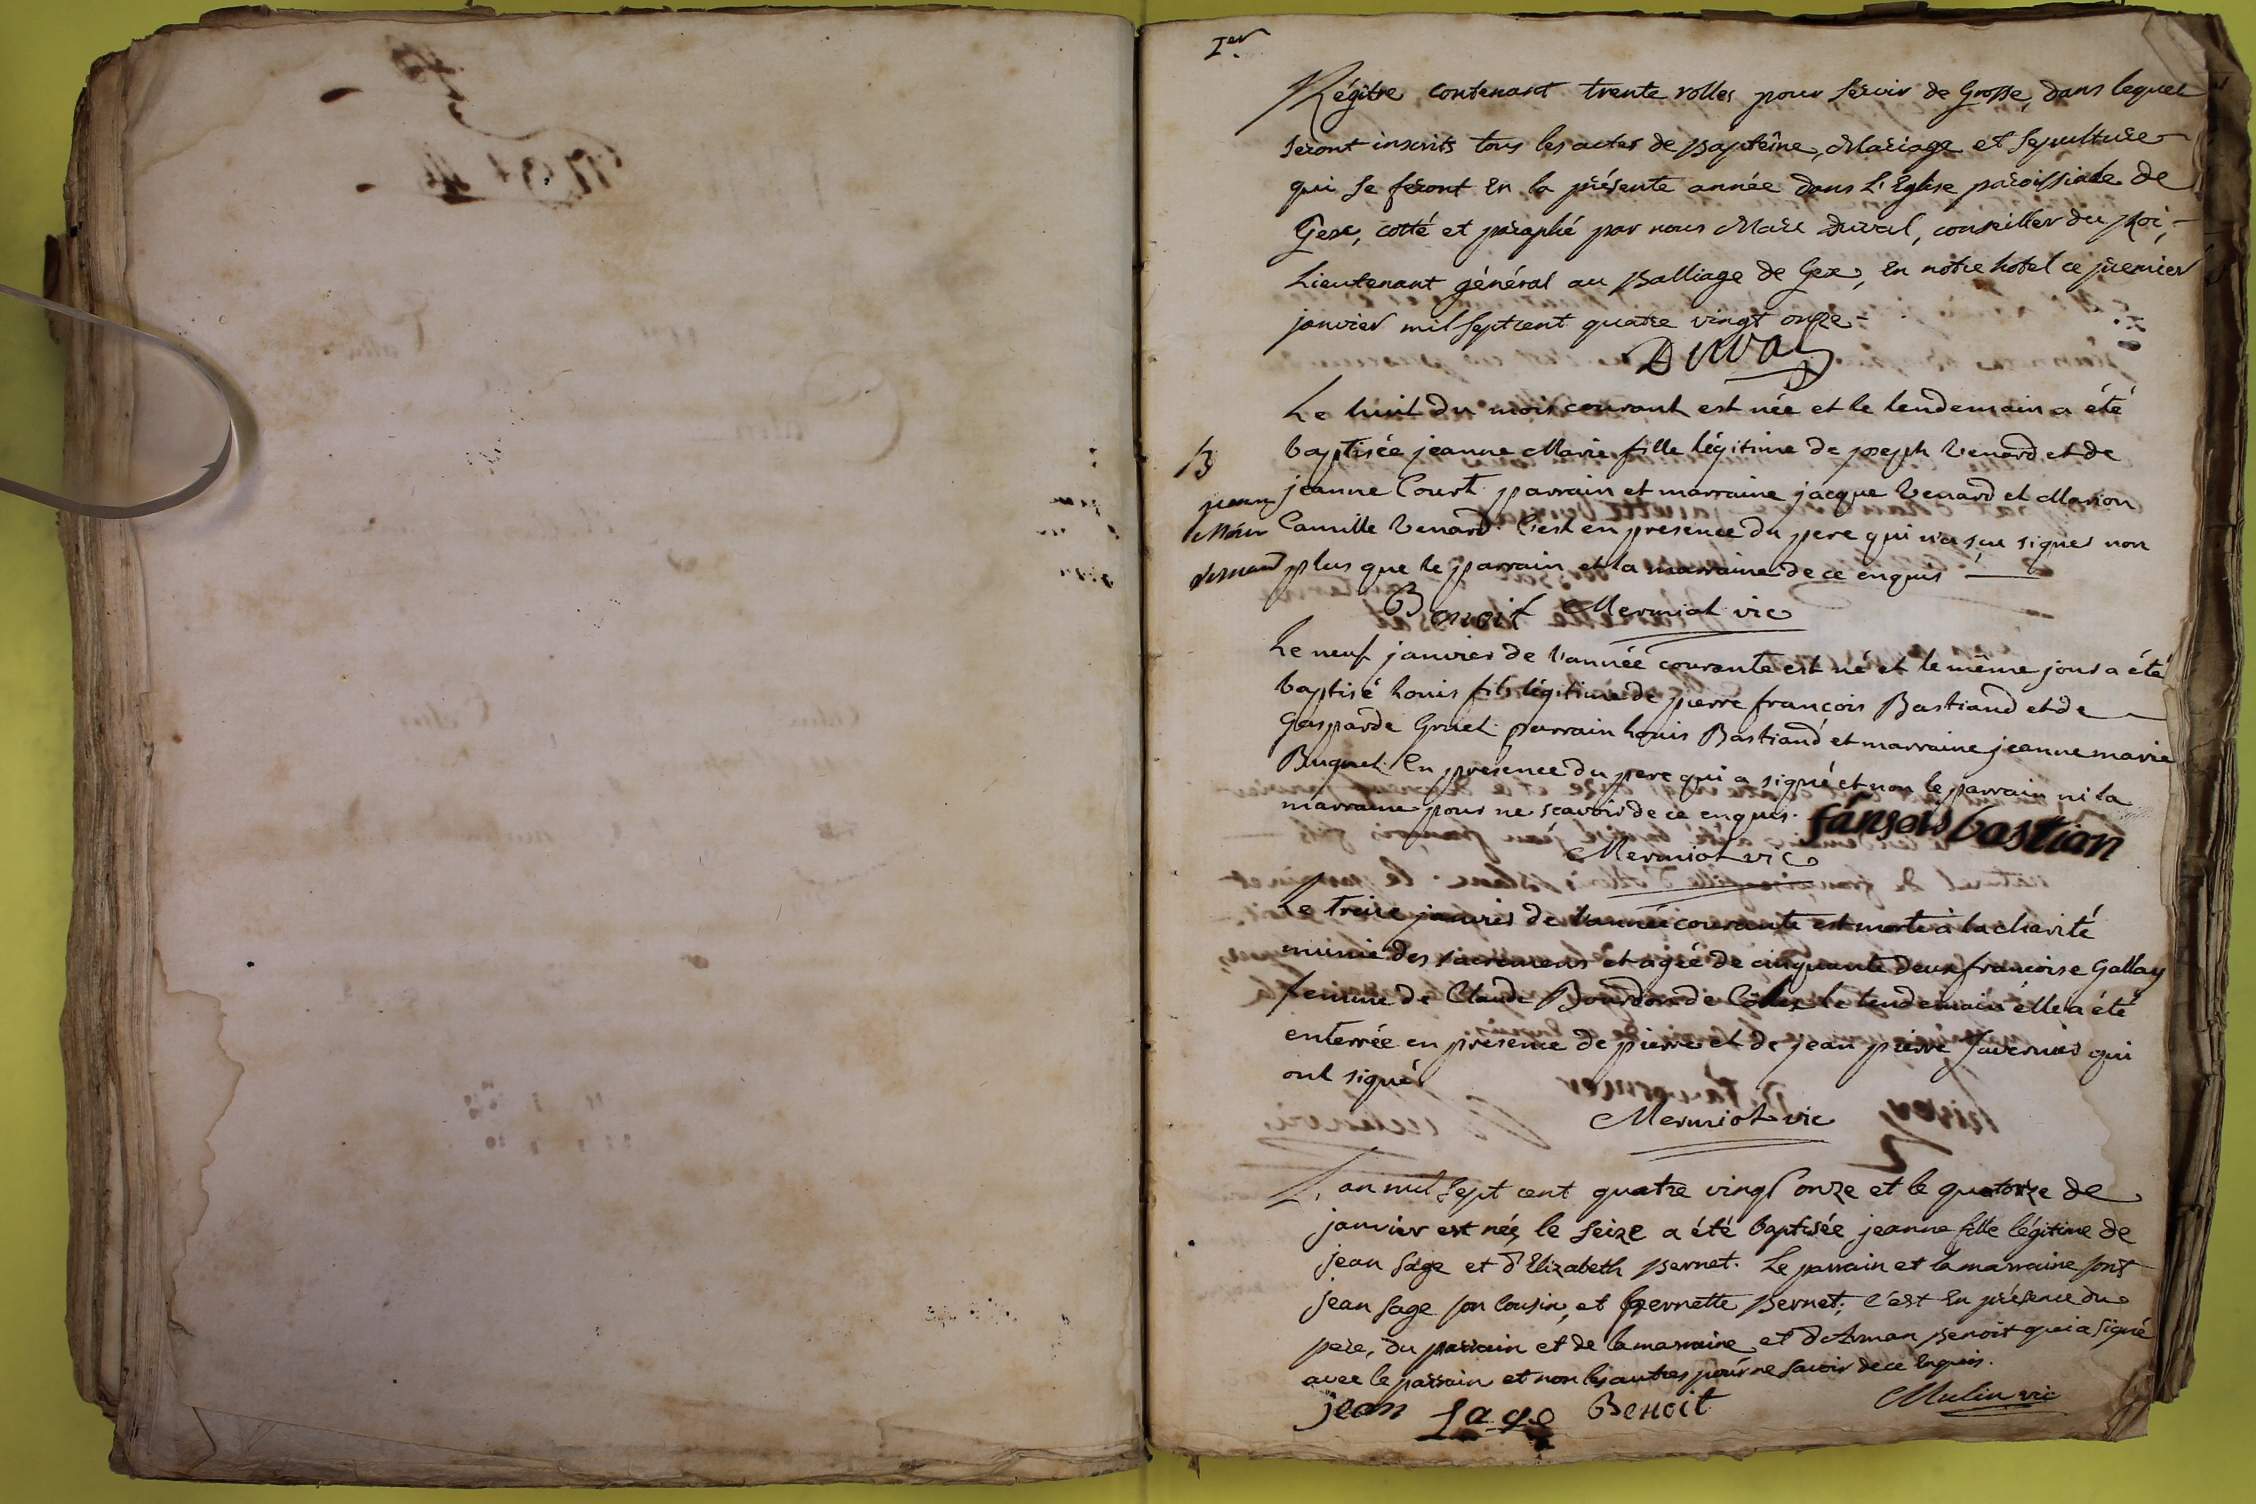 Ier
Régitre contenant trente rolles pour servir de Grosse, dans lequel
seront inscrits tous les actes de Baptême, Mariage et sepulture
qui se feront en la présente année dans l'Eglise paroissiale de
Gex, cotté et paraphé par nous Marc Duval, conseiller du Roi,
Lieutenant général au Balliage de Gex, en notre hotel ce premier
janvier mil sept cent quatre vingt onze
Duval
Le huit du mois courant est née et le lendemain a été
baptisée jeanne Marie fille légitime de joseph Venard et de
jeanne Court. parrain et marraine jacque Venard et Marion
Camille Venard. C'est en presence du pere qui n'a sçu signer non
plus que le parrain et la marraine de ce enquis
B
jeanne
Marie
Benoit Mermiot vic
Le neuf janvier de l'année courante est né et le même jour a été
baptisé Louis fils légitime de pierre françois Bastiand et de
Gasparde Gruel. parrain Louis Bastiand et marraine jeanne marie
Buguet. En presence du pere qui a signé et non le parrain ni la
marraine pour ne sçavoir de ce enquis. fánsois bastian
Mermiot vic
Le treize janvier de l'année courante est morte à la charité
munie des sacremens et agée de cinquante deux francoise Gallay
femme de Claude Bourdon de le lendemain elle a été
enterrée en présence de pierre et de jean pierre Tavernier qui
ont signé
Mermiot vic
L'an mil sept cent quatre vingt onze et le quatorze de
janvier est née, le seize a été baptisée jeanne fille légitime de
jean Sage et d'Elizabeth Bernet. Le parrain et la marraine sont
jean Sage son cousin, et pernette Bernet; c'est en présence du
pere, du parrain et de la marraine et d'Arman Benoit qui a signé
avec le parrain et non les autres pour ne savoir de ce enquis.
jean sage Benoit Mulin vic